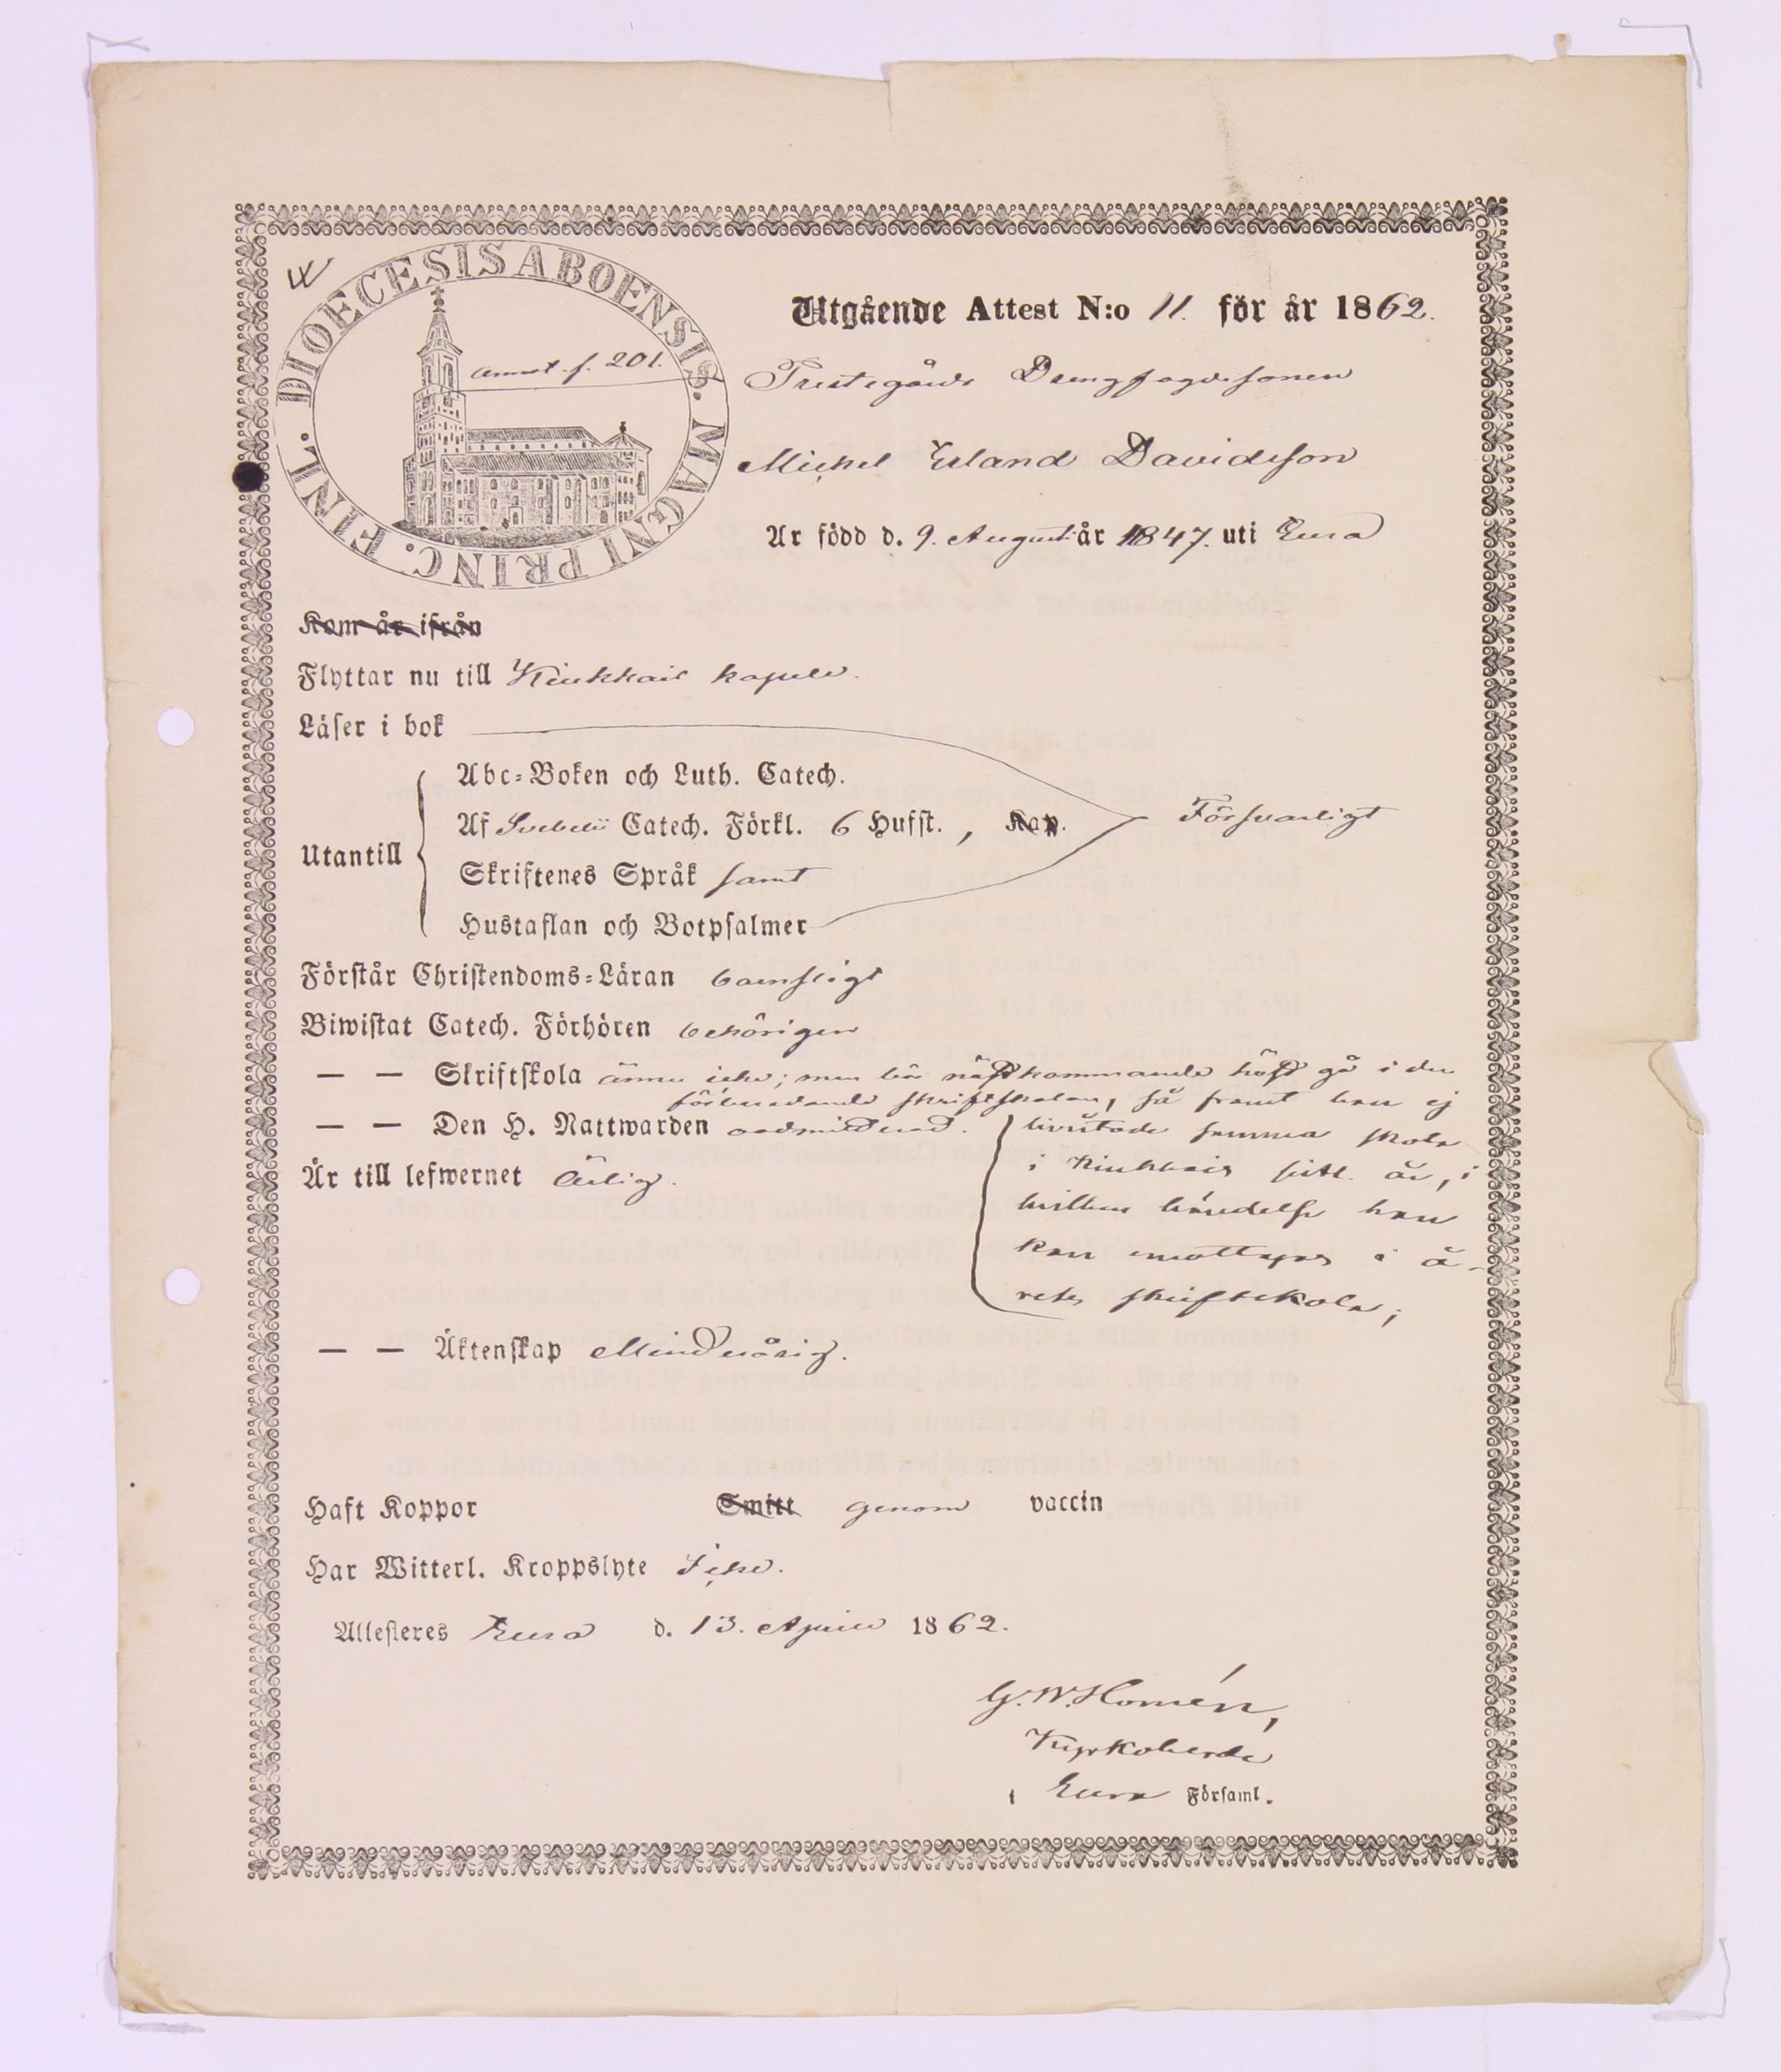 DIOECESIS ABOENSIS. MAGNI PRINC. FINL.
annot. f. 201.
Utgående Attest N:o 11. för år 1862.
Prestegårds Drengfogdesonen
Michel Erland Davidsson
Är född d. 9. August: år 1847. uti Eura
Kom år ifrån
Flyttar nu till Kiukkais kapell.
Läser i bok
Abc-Boken och Luth. Catech.
Af Svebelii Catech. Förkl. 6 Hufst., Kap.
Försvarligt
Utantill
Skriftenes Språk samt
Hustaflan och Botpsalmer
Förstår Christendoms-Läran barnsligt
Biwistat Catech. Förhören behörigen
— — Skriftskola ännu icke; men bör nästkommande höst gå i den
förberedande skriftskolan, så framt han ej
— — Den H. Nattwarden oadmitterad. bivistade samma skola
i Kiukkais sistl. år, i
Är till lefwernet Ärlig.
hvilken händelse han
kan emottagas i å-
rets skriftskola;
— — Äktenskap Minderårig.
Haft Koppor Smitt genom vaccin
Har Witterl. Kroppslyte Icke.
Attesteres Eura d. 13. April 1862.
G. W. Homén,
Kyrkoherde
i Eura Församl.